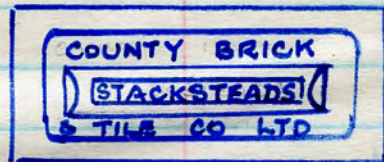 COUNTY BRICK
STACKSTEADS
& TILE CO LTD